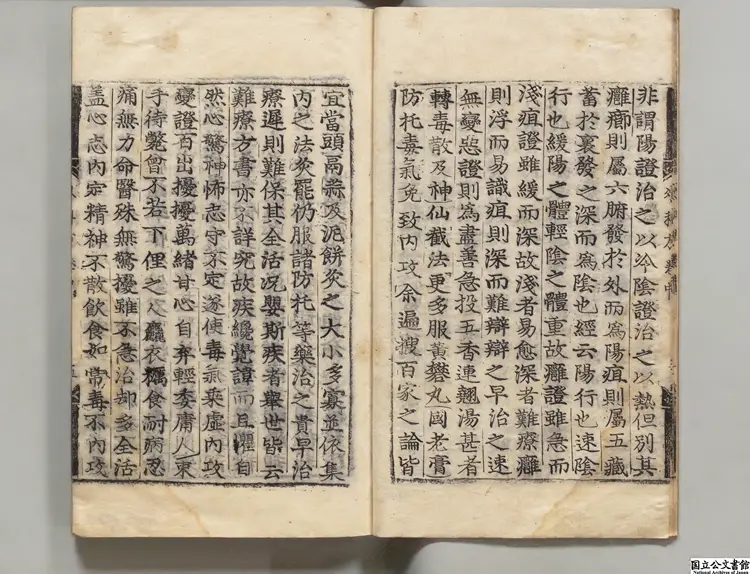 非謂陽證治之以冷陰證治之以熱但別其
癰癤則屬六腑發於外而為陽疽則屬五藏
蓄於裏發之深而為陰也經云陽行也速陰
行也緩陽之體輕陰之體重故癰證雖急而
淺疽證雖緩而深故淺者易愈深者難療癰
則浮而易識疽則深而難辯辯之早治之速
無變惡證則為盡善急投五香連翹湯甚者
轉毒散及神仙截法更多服黃礬丸國老膏
防托毒氣免致內攻余遍搜百家之論皆
宜當頭鬲蒜及泥餅灸之大小多寡並依集
內之法灸罷仍服諸防托等藥治之貴早治
療遲則難保其全活况嬰斯疾者舉世皆云
難療方書亦不詳究故疾纔覺諱而且懼自
然心驚神怖志守不定遂使毒氣乘虛內攻
變證百出擾擾萬緒甘心自弃輕委庸人束
手待斃曾不若下俚之人麤衣糲食耐病忍
痛無力命醫殊無驚擾雖不急治却多全活
盖心志內定精神不散飲食如常毒不內攻
国立公文書館
National Archives of Japan